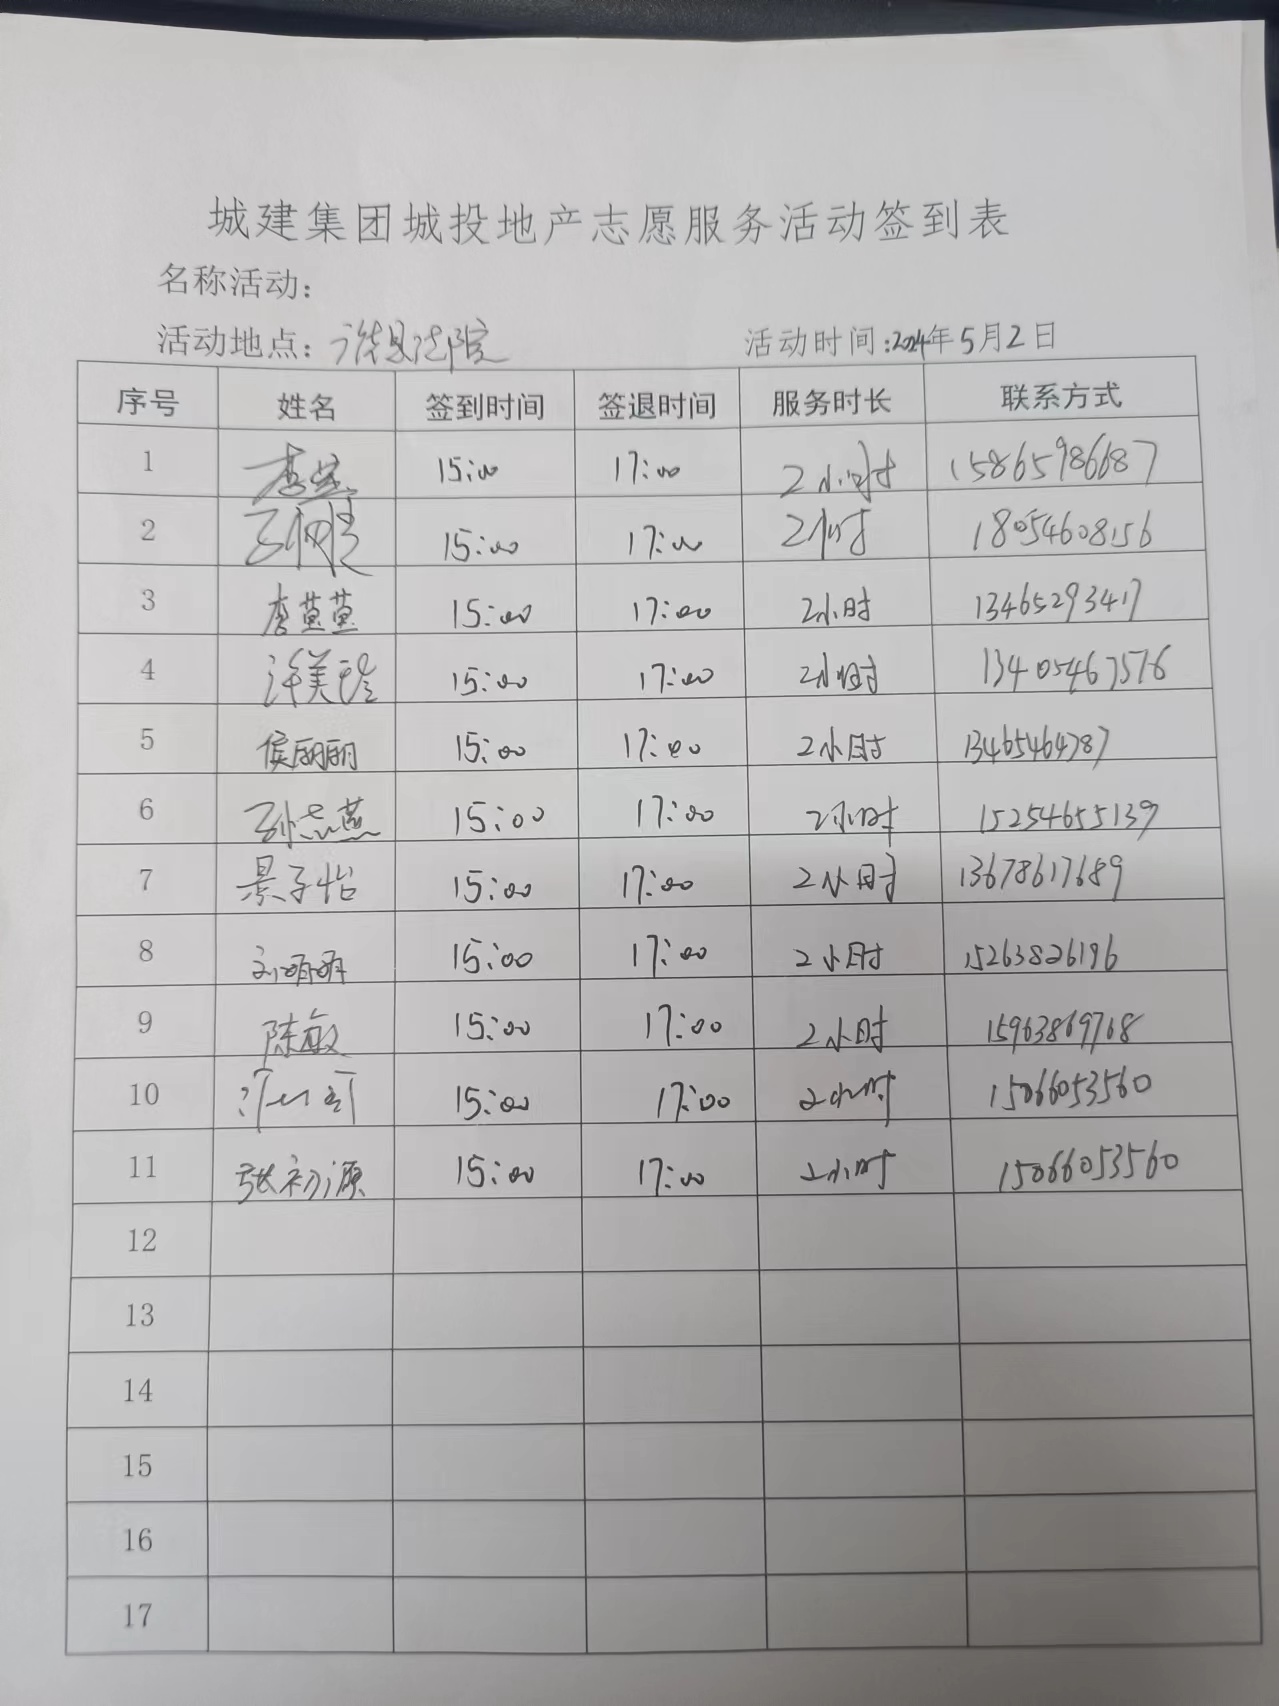 城建集团城投地产志愿服务活动签到表
名称活动：
活动地点： 法院 活动时间：2024年5月2日
序号 姓名 签到时间 签退时间 服务时长 联系方式
1 李 15:00 17:00 2小时 15865986687
2 15:00 17:00 2小时 18054608156
3 李莹莹 15:00 17:00 2小时 13465293417
4 许美玲 15:00 17:00 2小时 13405467576
5 侯丽丽 15:00 17:00 2小时 13465464787
6 孙志燕 15:00 17:00 2小时 15254655139
7 景子怡 15:00 17:00 2小时 13678617689
8 刘萌萌 15:00 17:00 2小时 15263826196
9 陈敏 15:00 17:00 2小时 15963869768
10 15:00 17:00 2小时 15066053560
11 张初源 15:00 17:00 2小时 15066053560
12
13
14
15
16
17